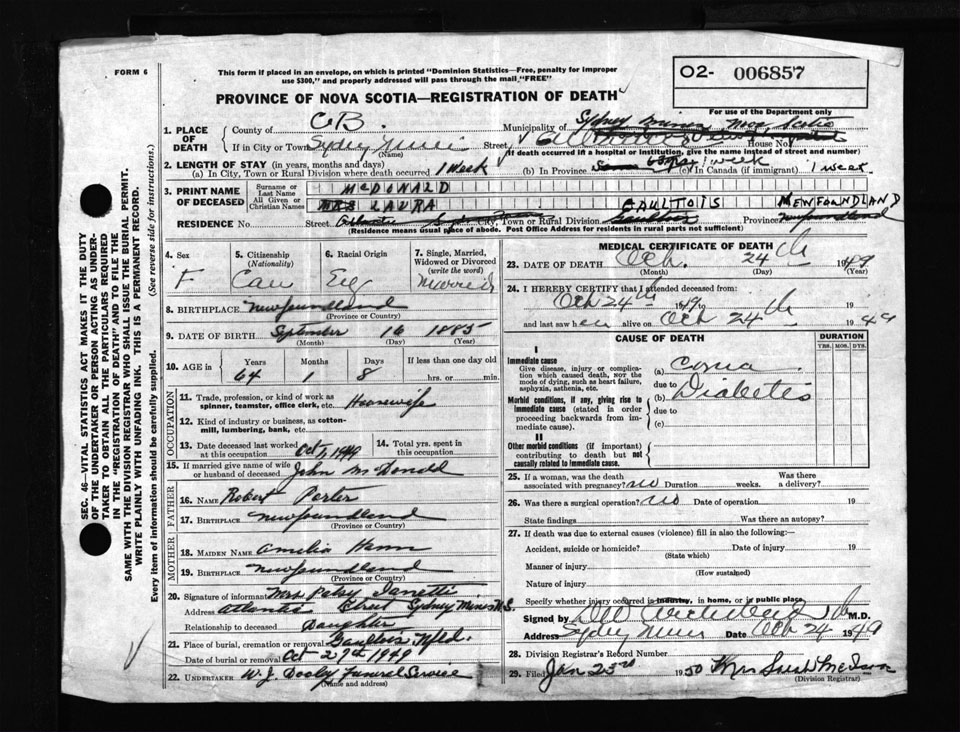 FORM 6
This form if placed in an envelope, on which is printed "Dominion Statistics—Free, penalty for improper
use $300," and properly addressed will pass through the mail, "FREE"
O2- 006857
For use of the Department only
PROVINCE OF NOVA SCOTIA—REGISTRATION OF DEATH
1. PLACE OF DEATH
County of C.B. Municipality of Sydney Mines Nova Scotia
If in City or Town Sydney Mines (Name) Street House No.
(If death occurred in a hospital or institution, give the name instead of street and number)
2. LENGTH OF STAY (in years, months and days)
(a) In City, Town or Rural Division where death occurred 1 Week (b) In Province 1 week (c) In Canada (if immigrant) 1 week
3. PRINT NAME OF DECEASED
Surname or Last Name McDONALD
All Given or Christian Names MRS LAURA
RESIDENCE No. Street City, Town or Rural Division GAULTOIS Province NEWFOUNDLAND
(Residence means usual place of abode. Post Office Address for residents in rural parts not sufficient)
4. Sex F
5. Citizenship (Nationality) Can
6. Racial Origin Eng
7. Single, Married, Widowed or Divorced (write the word) Married
8. BIRTHPLACE Newfoundland
(Province or Country)
9. DATE OF BIRTH September 16 1885
(Month) (Day) (Year)
10. AGE in Years 64 Months 1 Days 8 If less than one day old hrs. or min.
OCCUPATION
11. Trade, profession or kind of work as spinner, teamster, office clerk, etc. Housewife
12. Kind of industry or business, as cotton-mill, lumbering, bank, etc.
13. Date deceased last worked at this occupation Oct 1, 1949
14. Total yrs. spent in this occupation
15. If married give name of wife or husband of deceased John McDonald
FATHER
16. NAME Robert Porter
17. BIRTHPLACE Newfoundland
(Province or Country)
MOTHER
18. MAIDEN NAME Amelia Hann
19. BIRTHPLACE Newfoundland
(Province or Country)
20. Signature of informant Mrs Patsy Ianetti
Address Atlantic Street Sydney Mines N.S.
Relationship to deceased Daughter
21. Place of burial, cremation or removal Gaultois Nfld.
Date of burial or removal Oct 27th 1949
22. UNDERTAKER W. J. Dooley Funeral Service
(Name and address)
MEDICAL CERTIFICATE OF DEATH
23. DATE OF DEATH Oct. 24th 1949
(Month) (Day) (Year)
24. I HEREBY CERTIFY that I attended deceased from:
Oct 24th 19 to 19
and last saw her alive on Oct 24th 1949
CAUSE OF DEATH
DURATION
YRS. MOS. DYS.
I
Immediate cause
Give disease, injury or complication which caused death, NOT the mode of dying, such as heart failure, asphyxia, asthenia, etc.
(a) Coma
due to
Morbid conditions, if any, giving rise to immediate cause (stated in order proceeding backwards from immediate cause).
(b) Diabetes
due to
(c)
II
Other morbid conditions (if important) contributing to death but not causally related to immediate cause.
25. If a woman, was the death associated with pregnancy? no Duration weeks. Was there a delivery?
26. Was there a surgical operation? no Date of operation 19
State findings Was there an autopsy?
27. If death was due to external causes (violence) fill in also the following:—
Accident, suicide or homicide? Date of injury 19
(State which)
Manner of injury
(How sustained)
Nature of injury
Specify whether injury occurred in industry, in home, or in public place
Signed by M.D.
Address Sydney Mines Date Oct 24 1949
28. Division Registrar's Record Number
29. Filed Jan 23rd 1950 Mrs Sarah
(Division Registrar)
SEC. 46—VITAL STATISTICS ACT MAKES IT THE DUTY
OF THE UNDERTAKER OR PERSON ACTING AS UNDER-
TAKER TO OBTAIN ALL THE PARTICULARS REQUIRED
IN THE "REGISTRATION OF DEATH" AND TO FILE THE
SAME WITH THE DIVISION REGISTRAR WHO SHALL ISSUE THE BURIAL PERMIT.
WRITE PLAINLY WITH UNFADING INK. THIS IS A PERMANENT RECORD.
Every item of information should be carefully supplied. (See reverse side for instructions.)